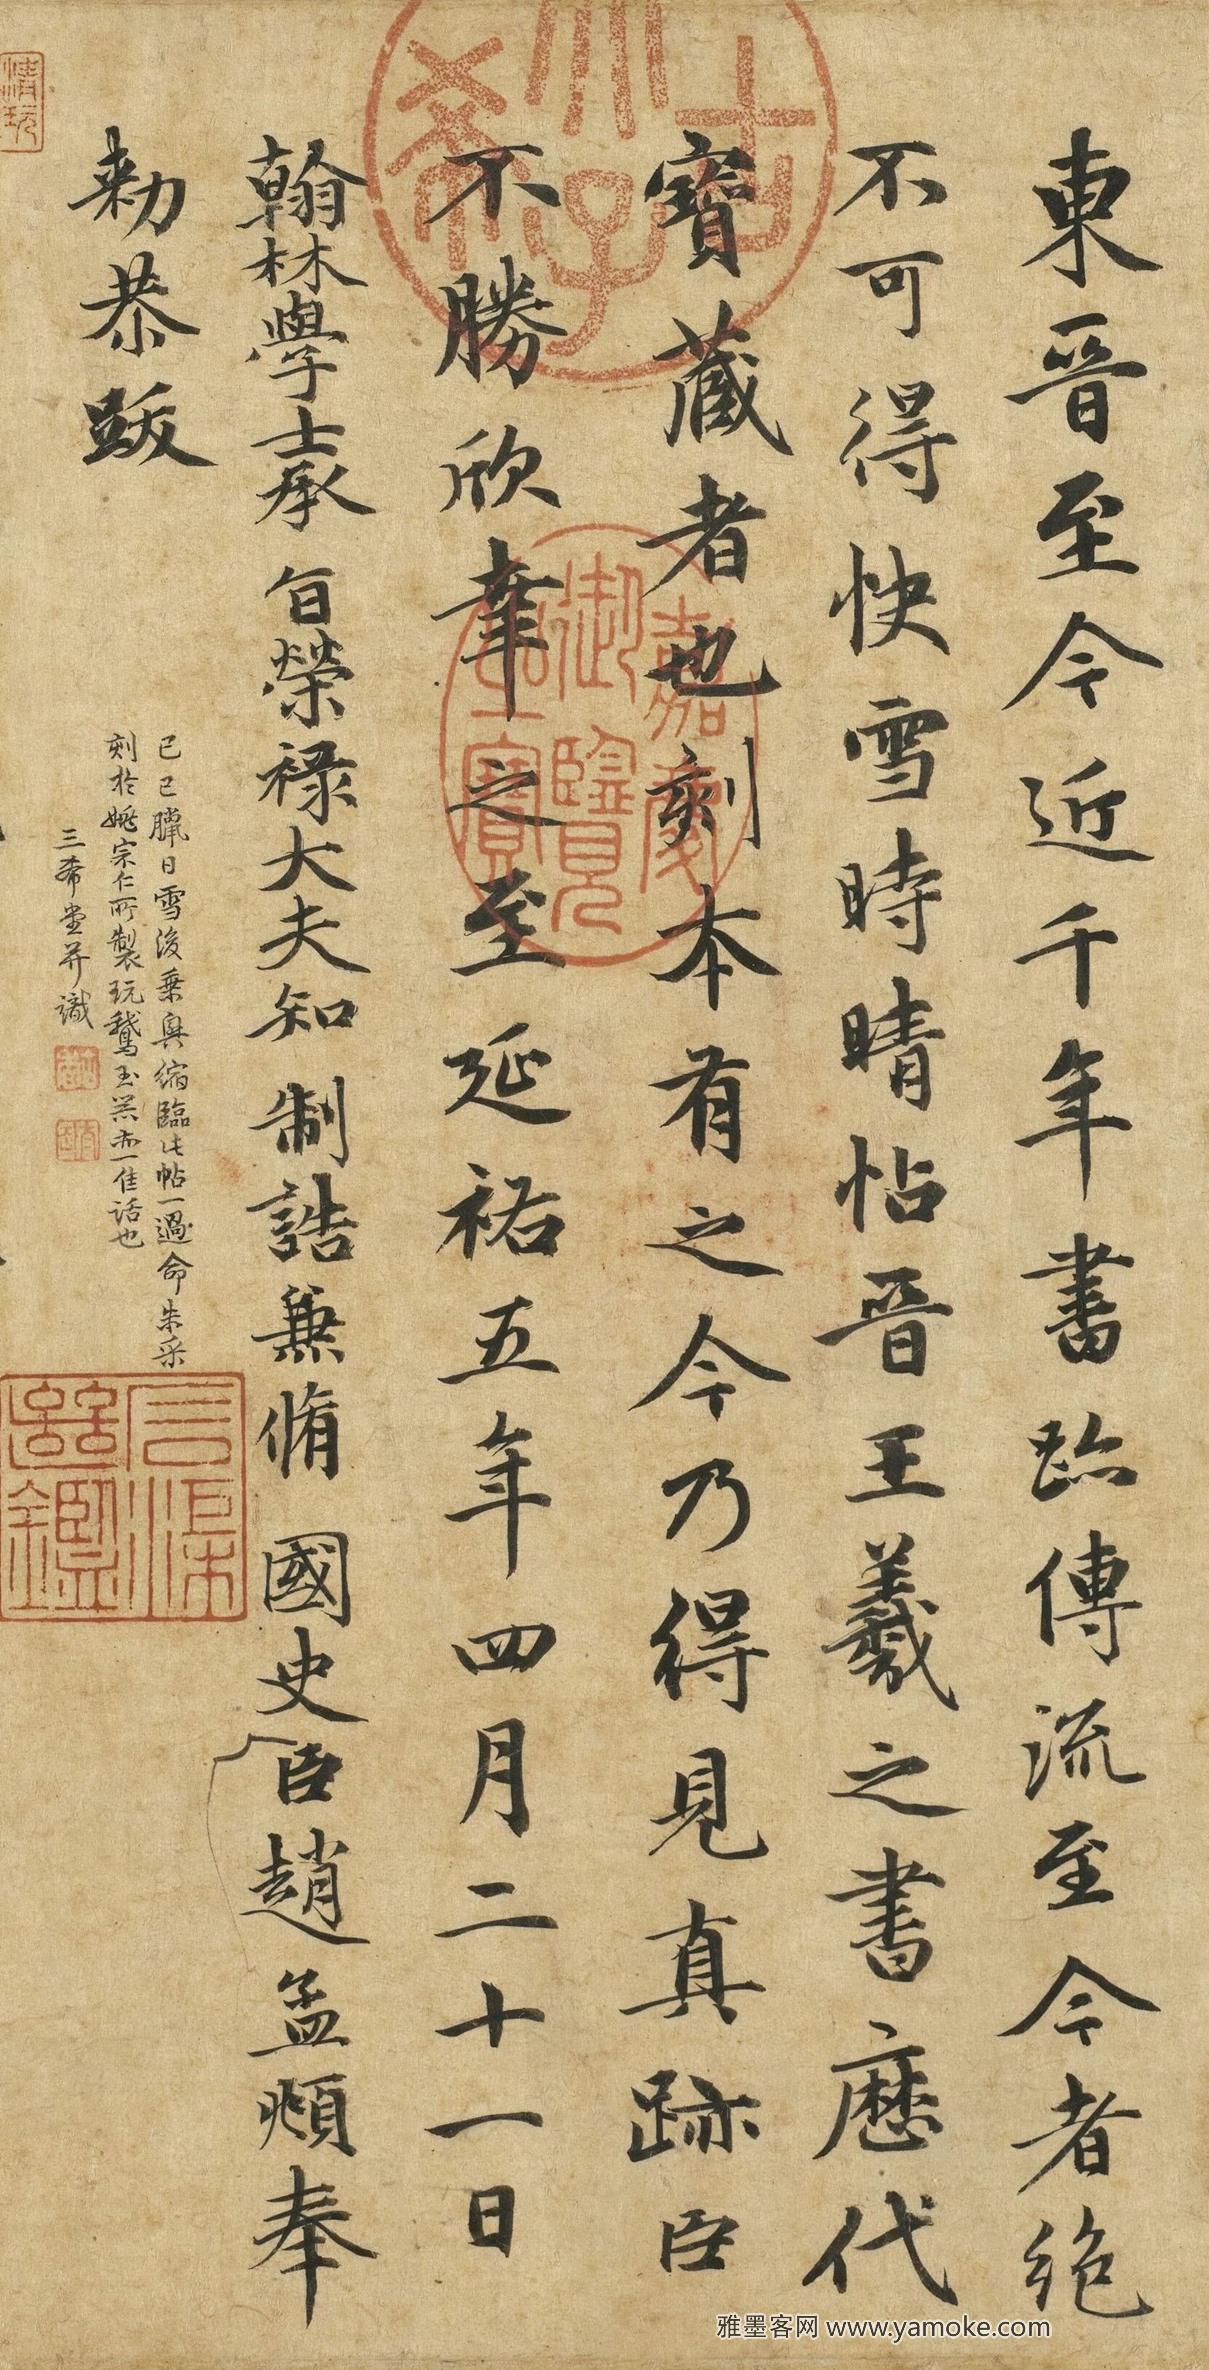 東晉至今近千年書跡傳流至今者絶
不可得快雪時晴帖晉王羲之書歷代
寶藏者也刻本有之今乃得見真跡臣
不勝欣幸之至延祐五年四月二十一日
翰林學士承旨榮祿大夫知制誥兼脩國史臣趙孟頫奉
勑恭跋
己巳臘日雪後乗興縮臨此帖一過命朱采
刻於姚宗仁所製玩鵞玉器亦一佳話也
三希堂并識
古希天子
嘉慶御覽之寶
清玩
雅墨客网 www.yamoke.com